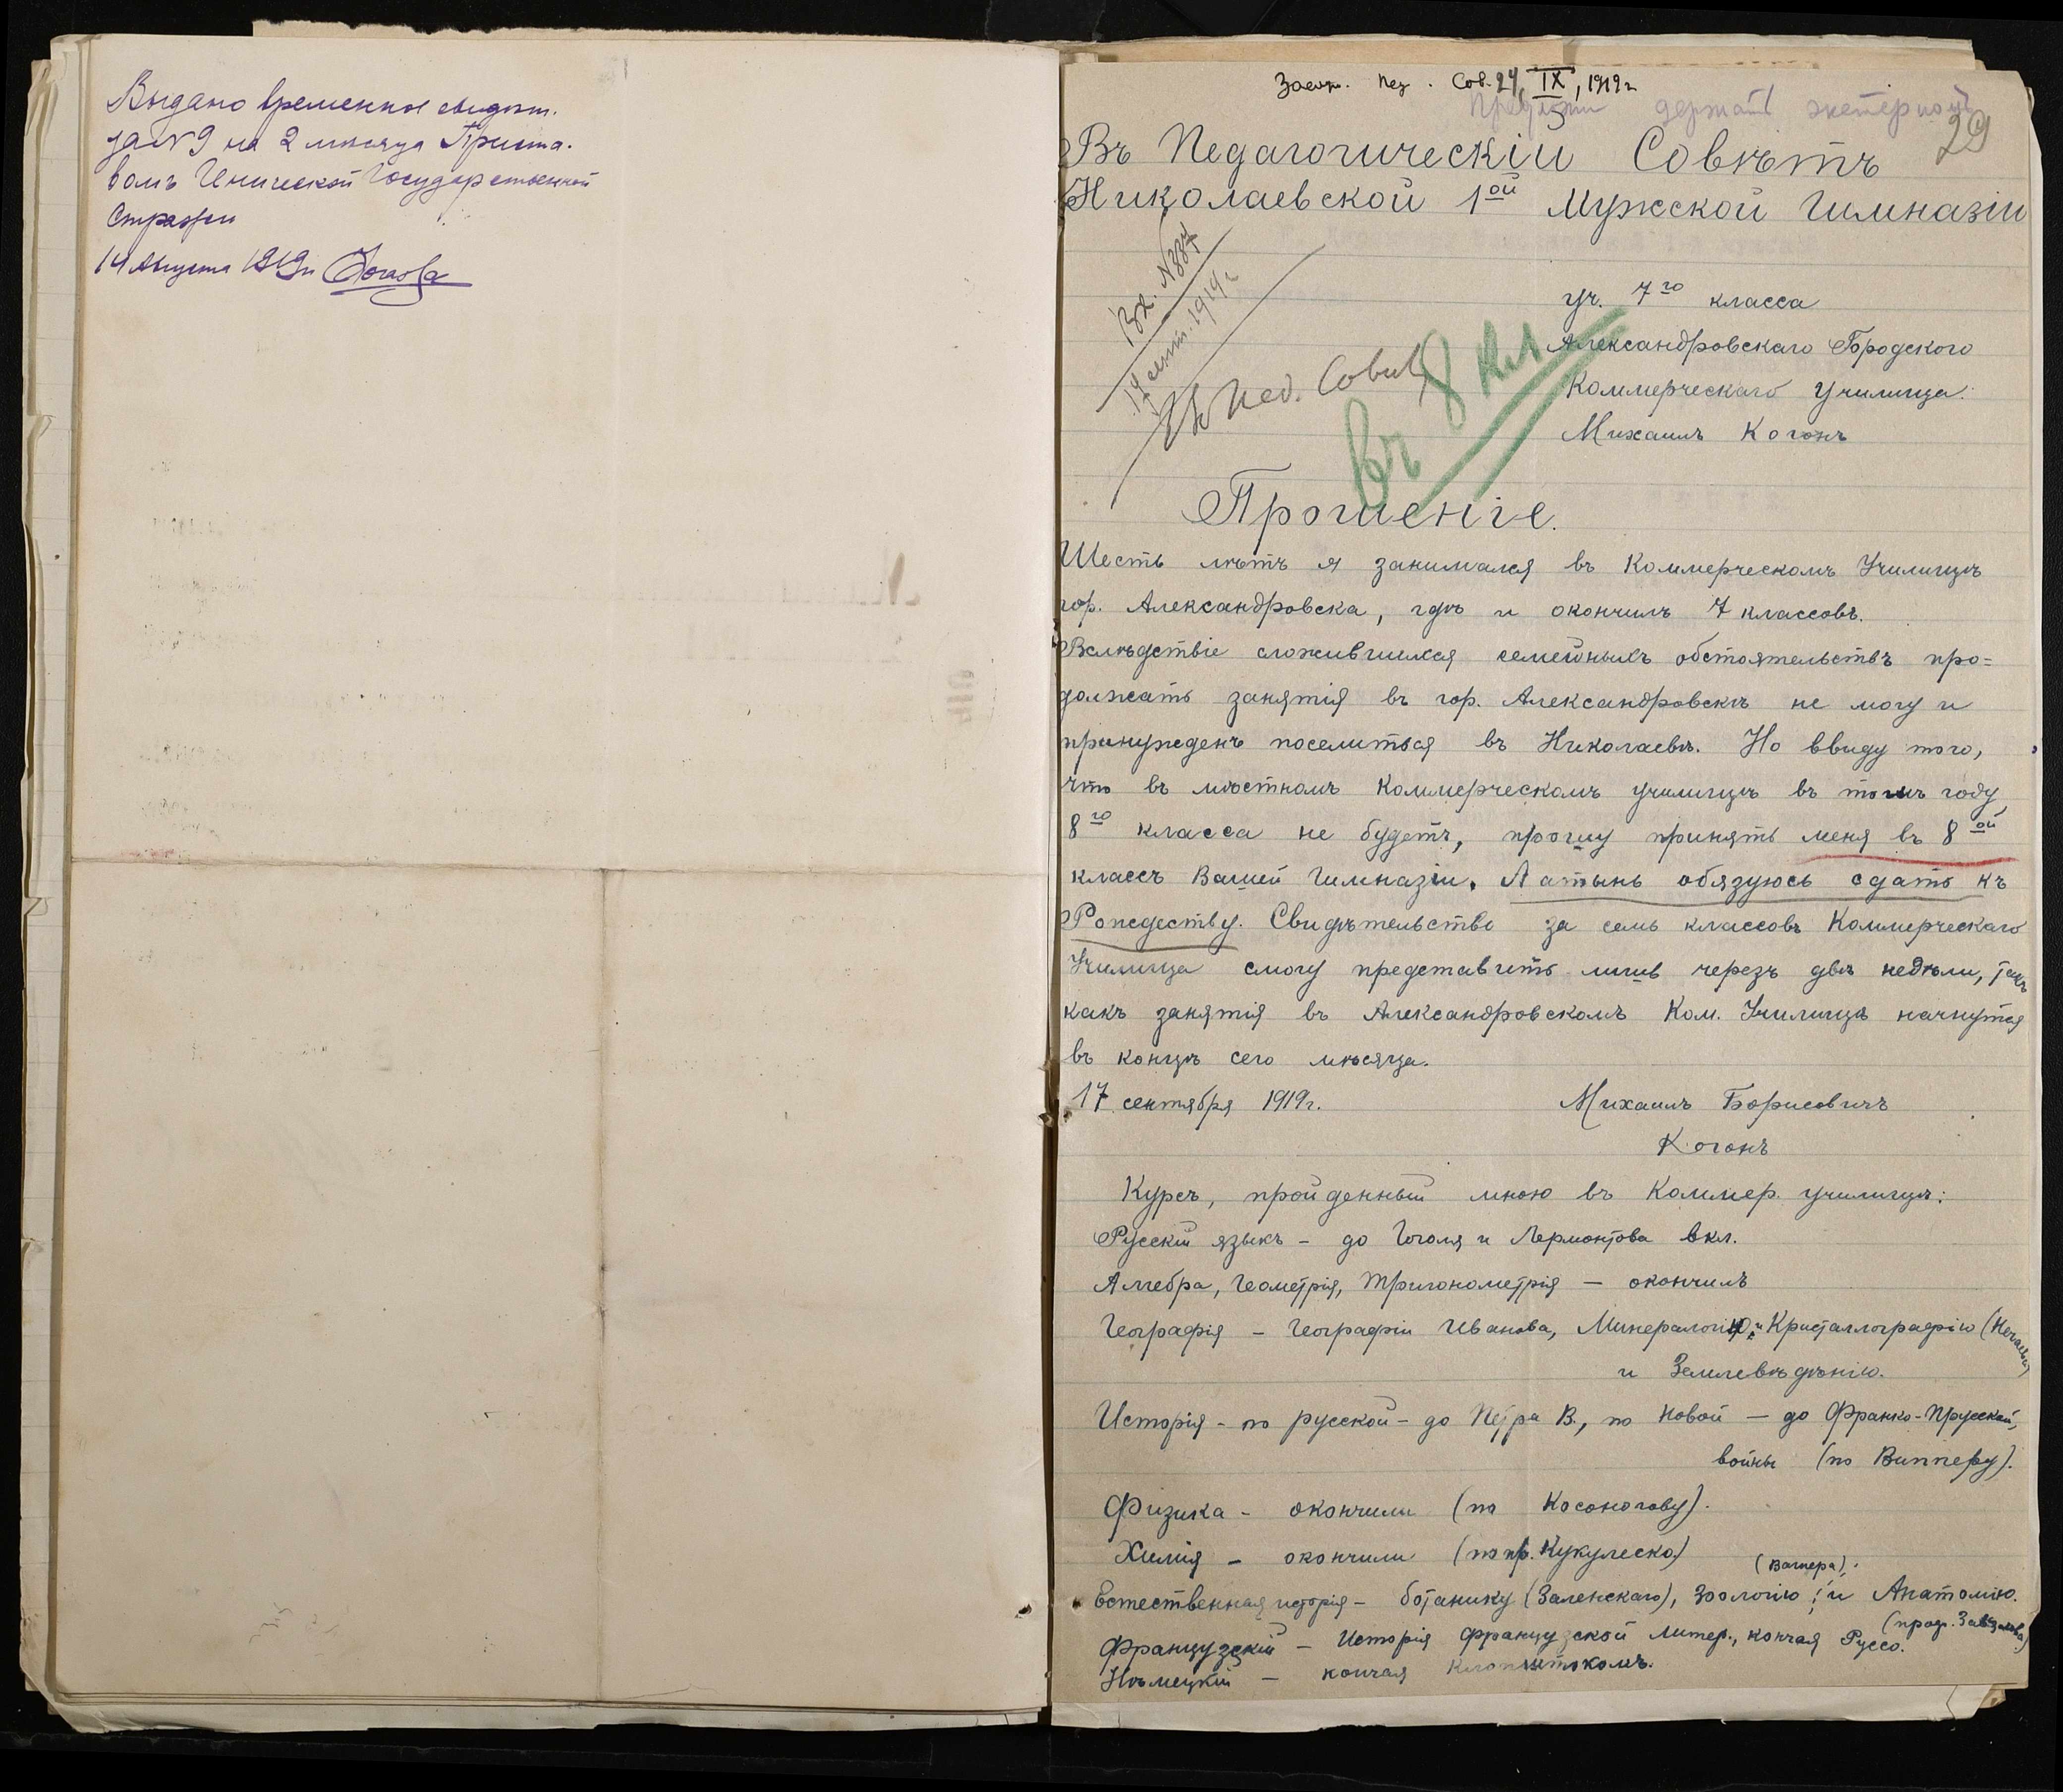 Выдано временное свидѣт.
за № 9 на 2 мѣсяца Приста-
вомъ Ичнской Государственной
Стражи
14 Августа 1919 г.
Засѣд. Пед. Сов. 24, IX, 1919 г.
держать экстерномъ
29
Въ Педагогическій Совѣтъ
Николаевской 1ой Мужской Гимназіи
Вх. № 887
17 сент. 1919 г.
Въ Пед. Совѣт
въ 8 кл
Уч. 7го класса
Александровскаго Городского
Коммерческаго Училища
Михаилъ Когонъ
Прошеніе.
Шесть лѣтъ я занимался въ Коммерческомъ Училищѣ
гор. Александровска, гдѣ и окончилъ 7 классовъ.
Вслѣдствіе сложившихся семейныхъ обстоятельствъ про=
должать занятія въ гор. Александровскѣ не могу и
принужденъ поселиться въ Николаевѣ. Но ввиду того,
что въ мѣстномъ Коммерческомъ училищѣ въ томъ году,
8го класса не будетъ, прошу принять меня въ 8ой
классъ Вашей Гимназіи. Латынь обязуюсь сдать къ
Рождеству. Свидѣтельство за семь классовъ Коммерческаго
Училища смогу представить лишь черезъ двѣ недѣли, такъ
какъ занятія въ Александровскомъ Ком. Училищѣ начнутся
въ концѣ сего мѣсяца.
17 сентября 1919 г. Михаилъ Борисовичъ
Когонъ
Курсъ, пройденный мною въ Коммер. училищѣ:
Русскій языкъ – до Гоголя и Лермонтова вкл.
Алгебра, Геометрія, Тригонометрія – окончилъ
Географія – Географіи Иванова, Минералогію и Кристаллографію (Нечаева)
и Землевѣдѣнію.
Исторія – по русской – до Петра В., по Новой – до Франко-Прусской,
войны (по Випперу).
Физика – окончили (по Косоногову).
Химія – окончили (по пр. Кукулеско)
(Вагнера).
Естественная исторія – ботанику (Заленскаго), зоологію и Анатомію.
(проф. Завьялова)
Французскій – Исторія французской литер., кончая Руссо.
Нѣмецкій – кончая Клопштокомъ.